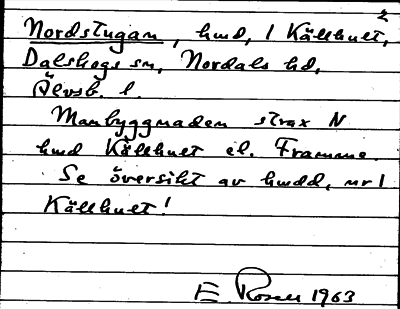 2
Nordstugan, hmd, 1 Källhult,
Dalskogs sn, Nordals hd,
Älvsb. l.
Manbyggnaden strax N
hmd Källhult el. Framme.
Se översikt av hmdd, nr 1
Källhult!
E Rosell 1963